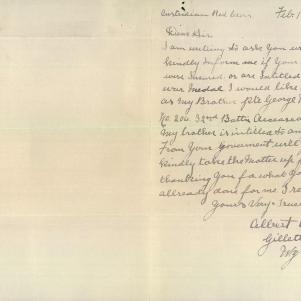 Custodian Med
Feb. 1
Dear Sir
I am writing to ask you w
kindly inform me if your
were Issued, or are Intitled
war Medal I would like
as My Brother Pte George
No. 204 32nd Battn deceased
My brother is intitled to an
From Your Goverment will
kindly take the Matter up
thanking You for what Yo
allready done for me I re
Yours Very Trues
Albert
Gillett